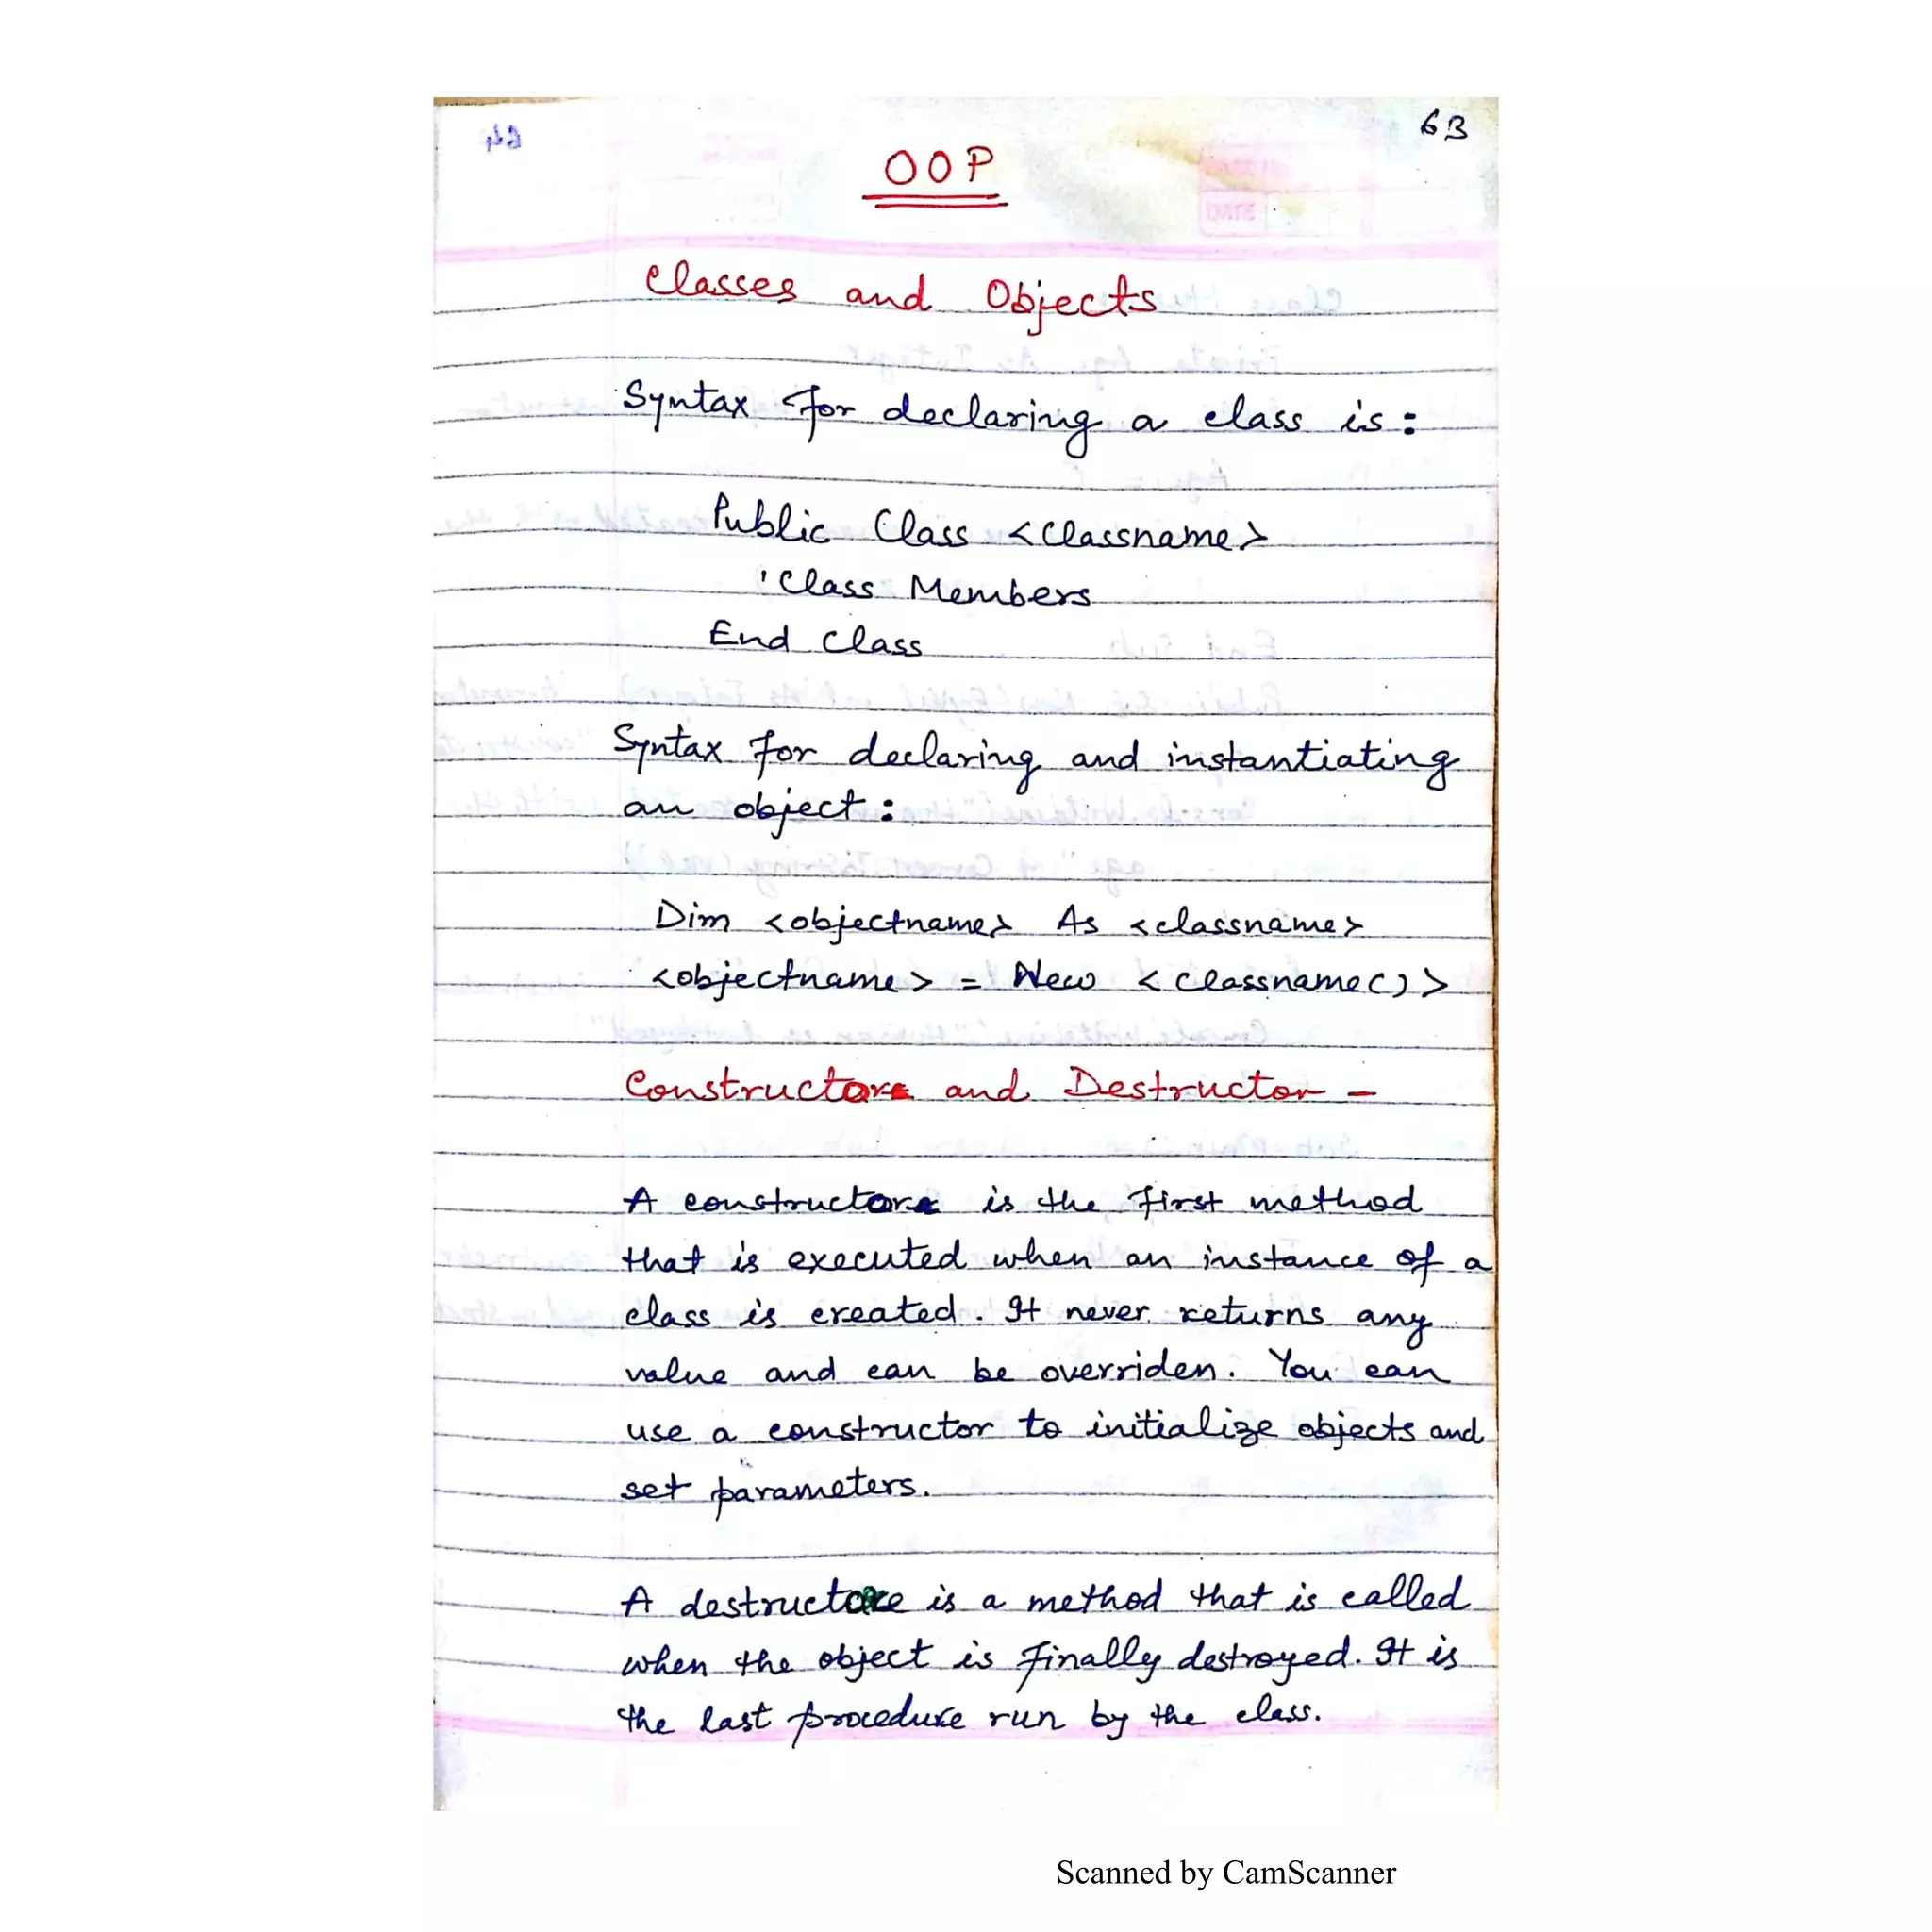 63
OOP
Classes and Objects
Syntax for declaring a class is:
Public Class <Classname>
'Class Members
End Class
Syntax for declaring and instantiating
an object:
Dim <objectname> As <classname>
<objectname> = New <classname()>
Constructor and Destructor -
A constructor is the first method
that is executed when an instance of a
class is created. It never returns any
value and can be overriden. You can
use a constructor to initialize objects and
set parameters.
A destructor is a method that is called
when the object is finally destroyed. It is
the last procedure run by the class.
Scanned by CamScanner